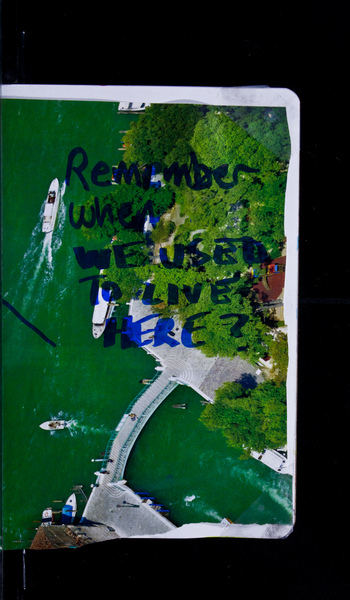 Remember
when
WE USED
TO LIVE
HERE?